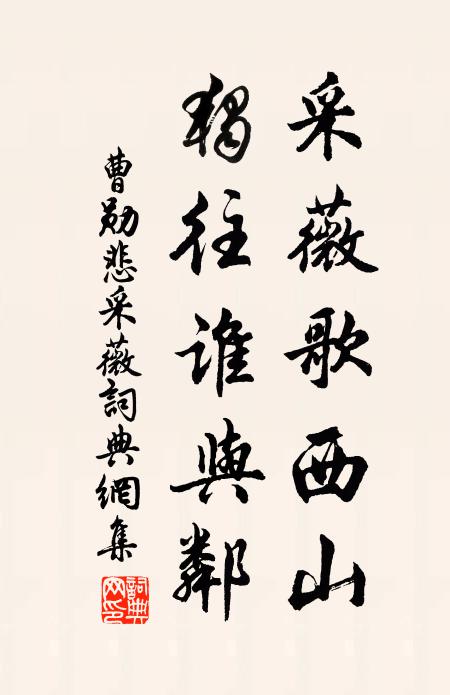 采薇歌西山
獨往誰與鄰
曹勛悲采薇詞典網集
詞典网印